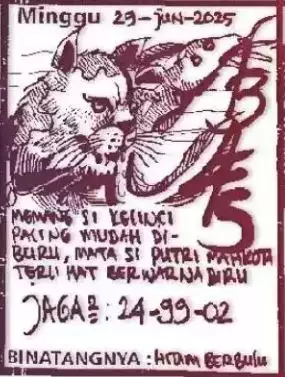 Minggu 29-JUN-2025
MEMANG SI KELINCI
PALING MUDAH DI-
BURU, MATA SI PUTRI MAHKOTA
TERLIHAT BERWARNA BIRU
JAGA2: 24-99-02
BINATANGNYA : HITAM BERBULU